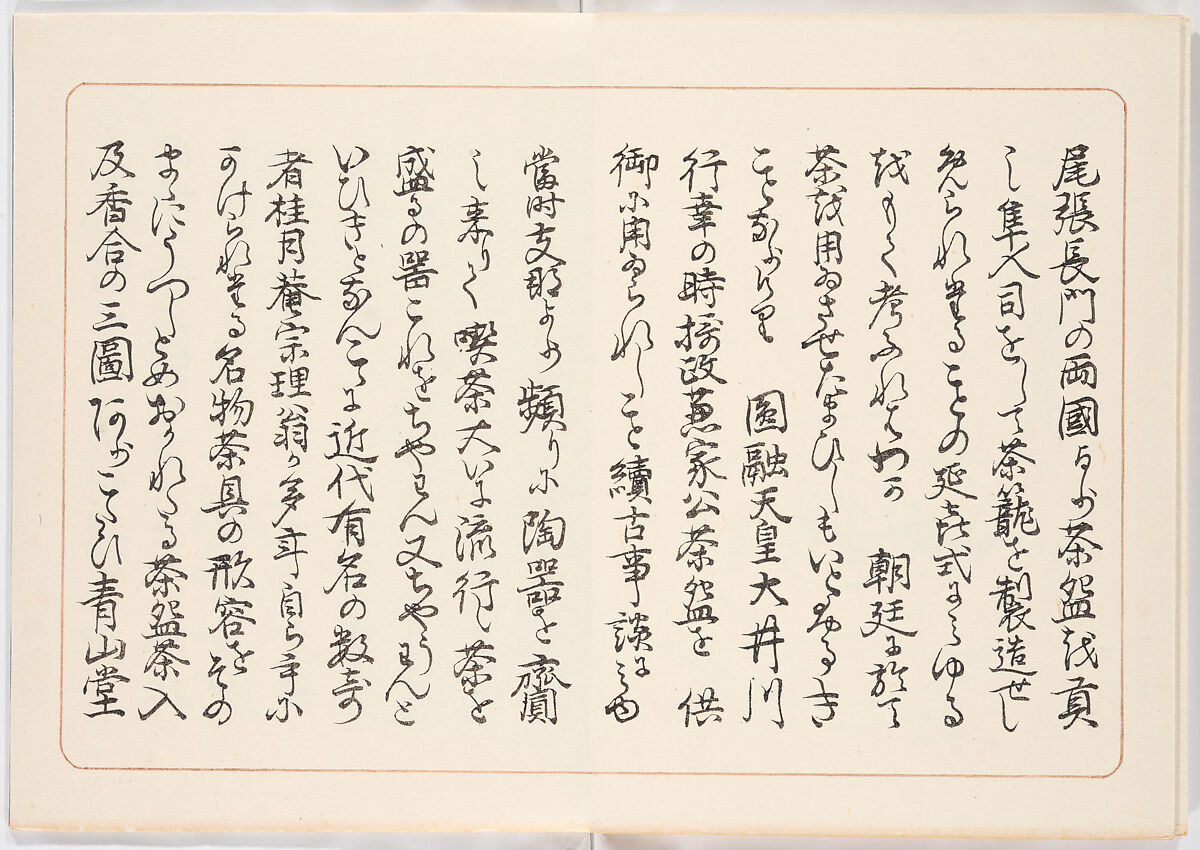 尾張長門の両國より茶盌を貢
し隼人司をして茶籠を製造せし
められたることの延喜式にみゆる
をもて考ふれはわか 朝廷に於て
茶を用ゐさせたまひしもいとふるき
ことなりけり 圓融天皇大井川
行幸の時摂政兼家公茶盌を 供
御に用ゐられしこと續古事談にみゆ
當時支那より頻りに陶器を齎
し来りて喫茶大いに流行し茶を
盛るの器これをちやわん又ちやうわんと
いひきとなんこゝに近代有名の数寄
者桂月菴宗理翁か多年自ら手に
かけられたる名物茶具の形容をその
まゝにうつしとめおかれたる茶盌茶入
及香合の三圖あり こたひ青山堂